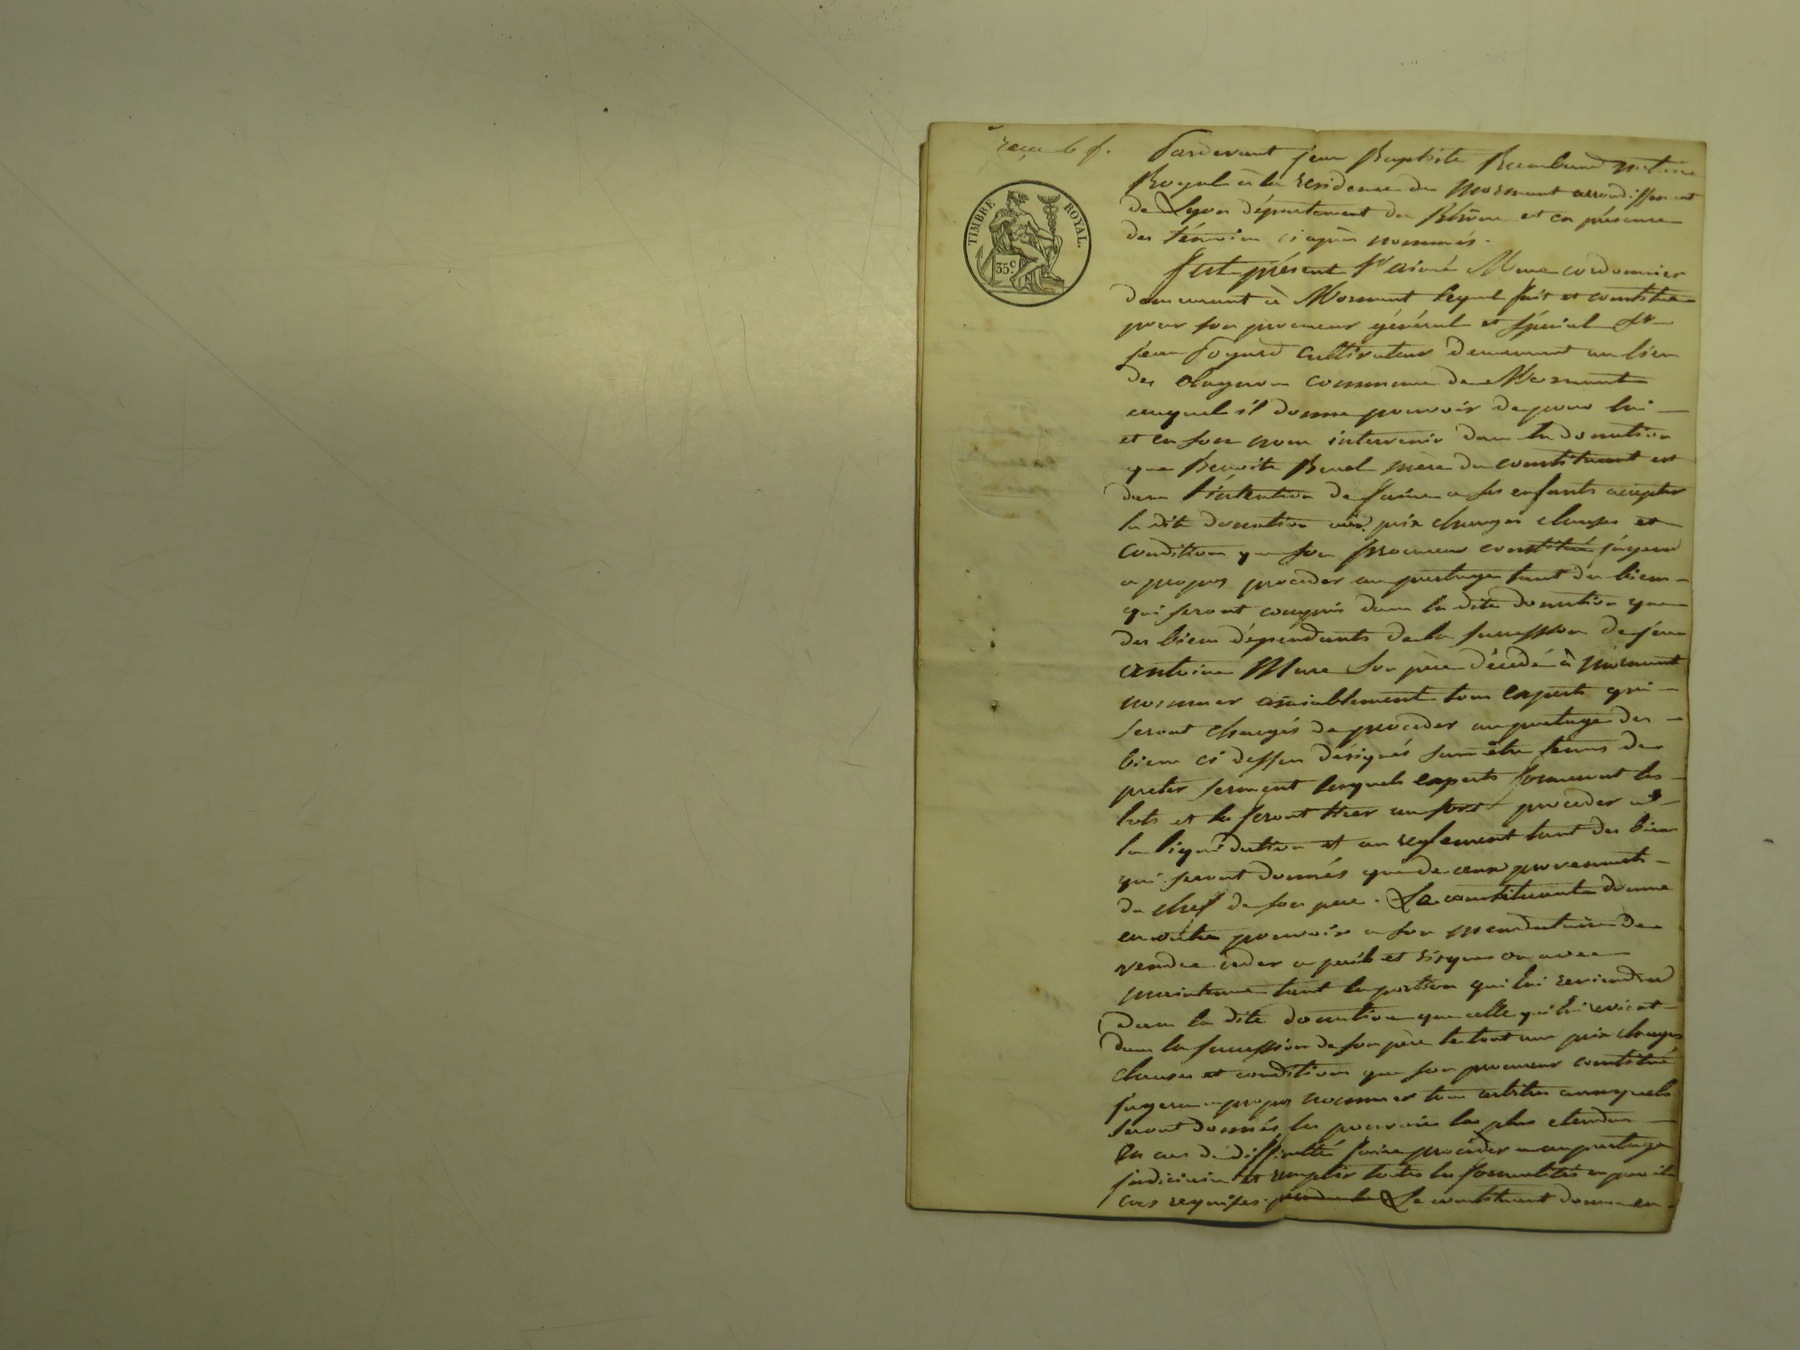 reçu 6 f.
TIMBRE ROYAL.
35 c.
Pardevant jean Baptiste notaire
Royal à la residence de Mornant arrondissement
de Lyon département du Rhône et en présence
des témoins ci après nommés.
fut présent Sr aimé Mure cordonnier
demeurant à Mornant lequel fait et constitue
pour son procureur général et spécial Sr
jean cultivateur demeurant au lieu
de commune de Mornant
auquel il donne pouvoir de pour lui
et en son nom intervenir dans la donation
que Benoite mère du constituant est
dans l'intention de faire a ses enfants accepter
la dite donation aux prix charges clauses et
condition que son procureur constitué jugera
a propos procéder au partage tant des biens
qui seront compris dans la dite donation que
des biens dépendants de la succession de jean
antoine Mure son père décédé à Mornant
nommer amiablement tous experts qui
seront chargés de procéder au partage des
biens ci dessus désignés sans être tenus de
preter serment lesquels experts formeront les
lots et les feront tirer au sort procéder a
la liquidation et au reglement tant des biens
qui seront donnés que de ceux provenants
du chef de son père. Le constituant donne
en outre pouvoir a son mandataire de
vendre ceder a peril et risques ou avec
maintenue tant la portion qui lui reviendra
dans la dite donation que celle qui lui revient
dans la succession de son père le tout aux prix charges
clauses et conditions que son procureur constitué
jugera a propos nommer tous arbitres auxquels
seront donnés les pouvoirs les plus etendus
En cas de difficulté faire procéder a un partage
judiciaire et remplir toutes les formalités en pareil
cas requises. Le constituant donne en